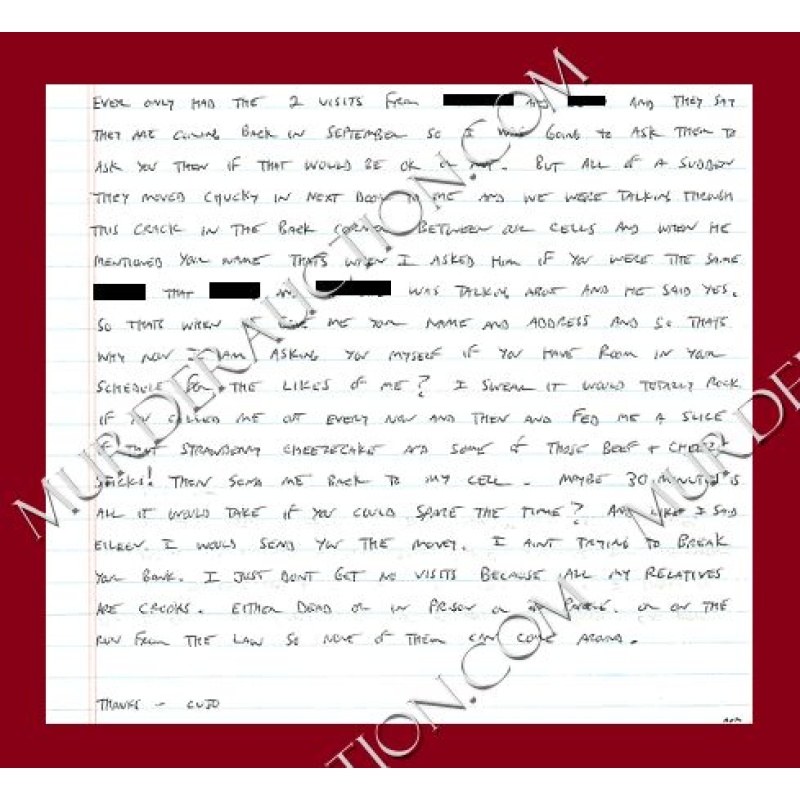 EVER ONLY HAD THE 2 VISITS FROM AND AND THEY SAY
THEY ARE COMING BACK IN SEPTEMBER SO I WAS GOING TO ASK THEM TO
ASK YOU THEN IF THAT WOULD BE OK OR NOT. BUT ALL OF A SUDDEN
THEY MOVED CHUCKY IN NEXT DOOR TO ME AND WE WERE TALKING THROUGH
THIS CRACK IN THE BACK CORNER BETWEEN OUR CELLS AND WHEN HE
MENTIONED YOUR NAME THATS WHEN I ASKED HIM IF YOU WERE THE SAME
THAT AND WAS TALKING ABOUT AND HE SAID YES.
SO THATS WHEN HE GAVE ME YOUR NAME AND ADDRESS AND SO THATS
WHY NOW I AM ASKING YOU MYSELF IF YOU HAVE ROOM IN YOUR
SCHEDULE FOR THE LIKES OF ME? I SWEAR IT WOULD TOTALLY ROCK
IF YOU CALLED ME OUT EVERY NOW AND THEN AND FED ME A SLICE
OF THAT STRAWBERRY CHEEZECAKE AND SOME OF THOSE BEEF + CHEEZE
STICKS! THEN SEND ME BACK TO MY CELL. MAYBE 30 MINUTES IS
ALL IT WOULD TAKE IF YOU COULD SPARE THE TIME? AND LIKE I SAID
EILEEN. I WOULD SEND YOU THE MONEY. I AINT TRYING TO BREAK
YOUR BANK. I JUST DONT GET NO VISITS BECAUSE ALL MY RELATIVES
ARE CROOKS. EITHER DEAD OR IN PRISON OR ON PAROLE. OR ON THE
RUN FROM THE LAW SO NONE OF THEM CAN COME AROUND.
THANKS - CUJO
MURDERAUCTION.COM